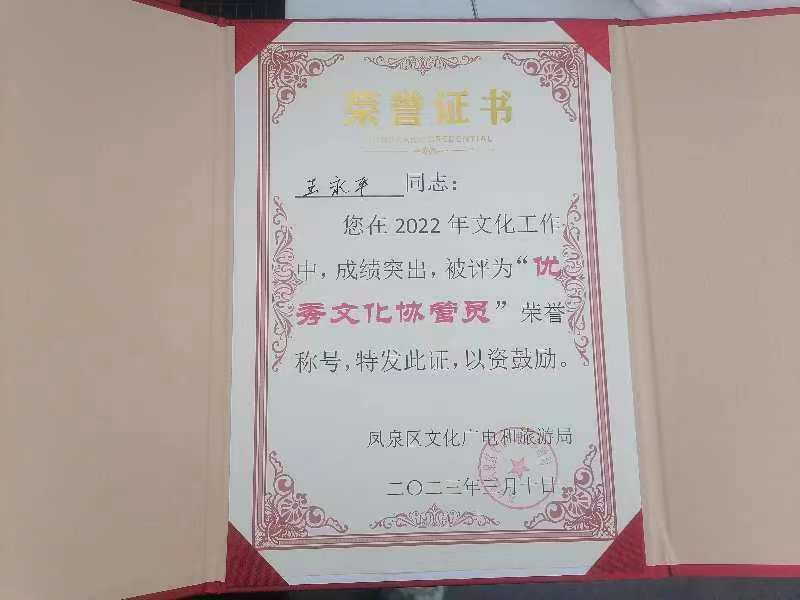 荣誉证书
王永平 同志：
您在 2022 年文化工作
中，成绩突出，被评为“优
秀文化协管员”荣誉
称号，特发此证，以资鼓励。
凤泉区文化广电和旅游局
二〇二三年三月十日